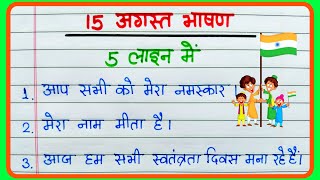 15 अगस्त भाषण
5 लाइन में
1. आप सभी को मेरा नमस्कार।
2. मेरा नाम मीता है।
3. आज हम सभी स्वतंत्रता दिवस मना रहे हैं।